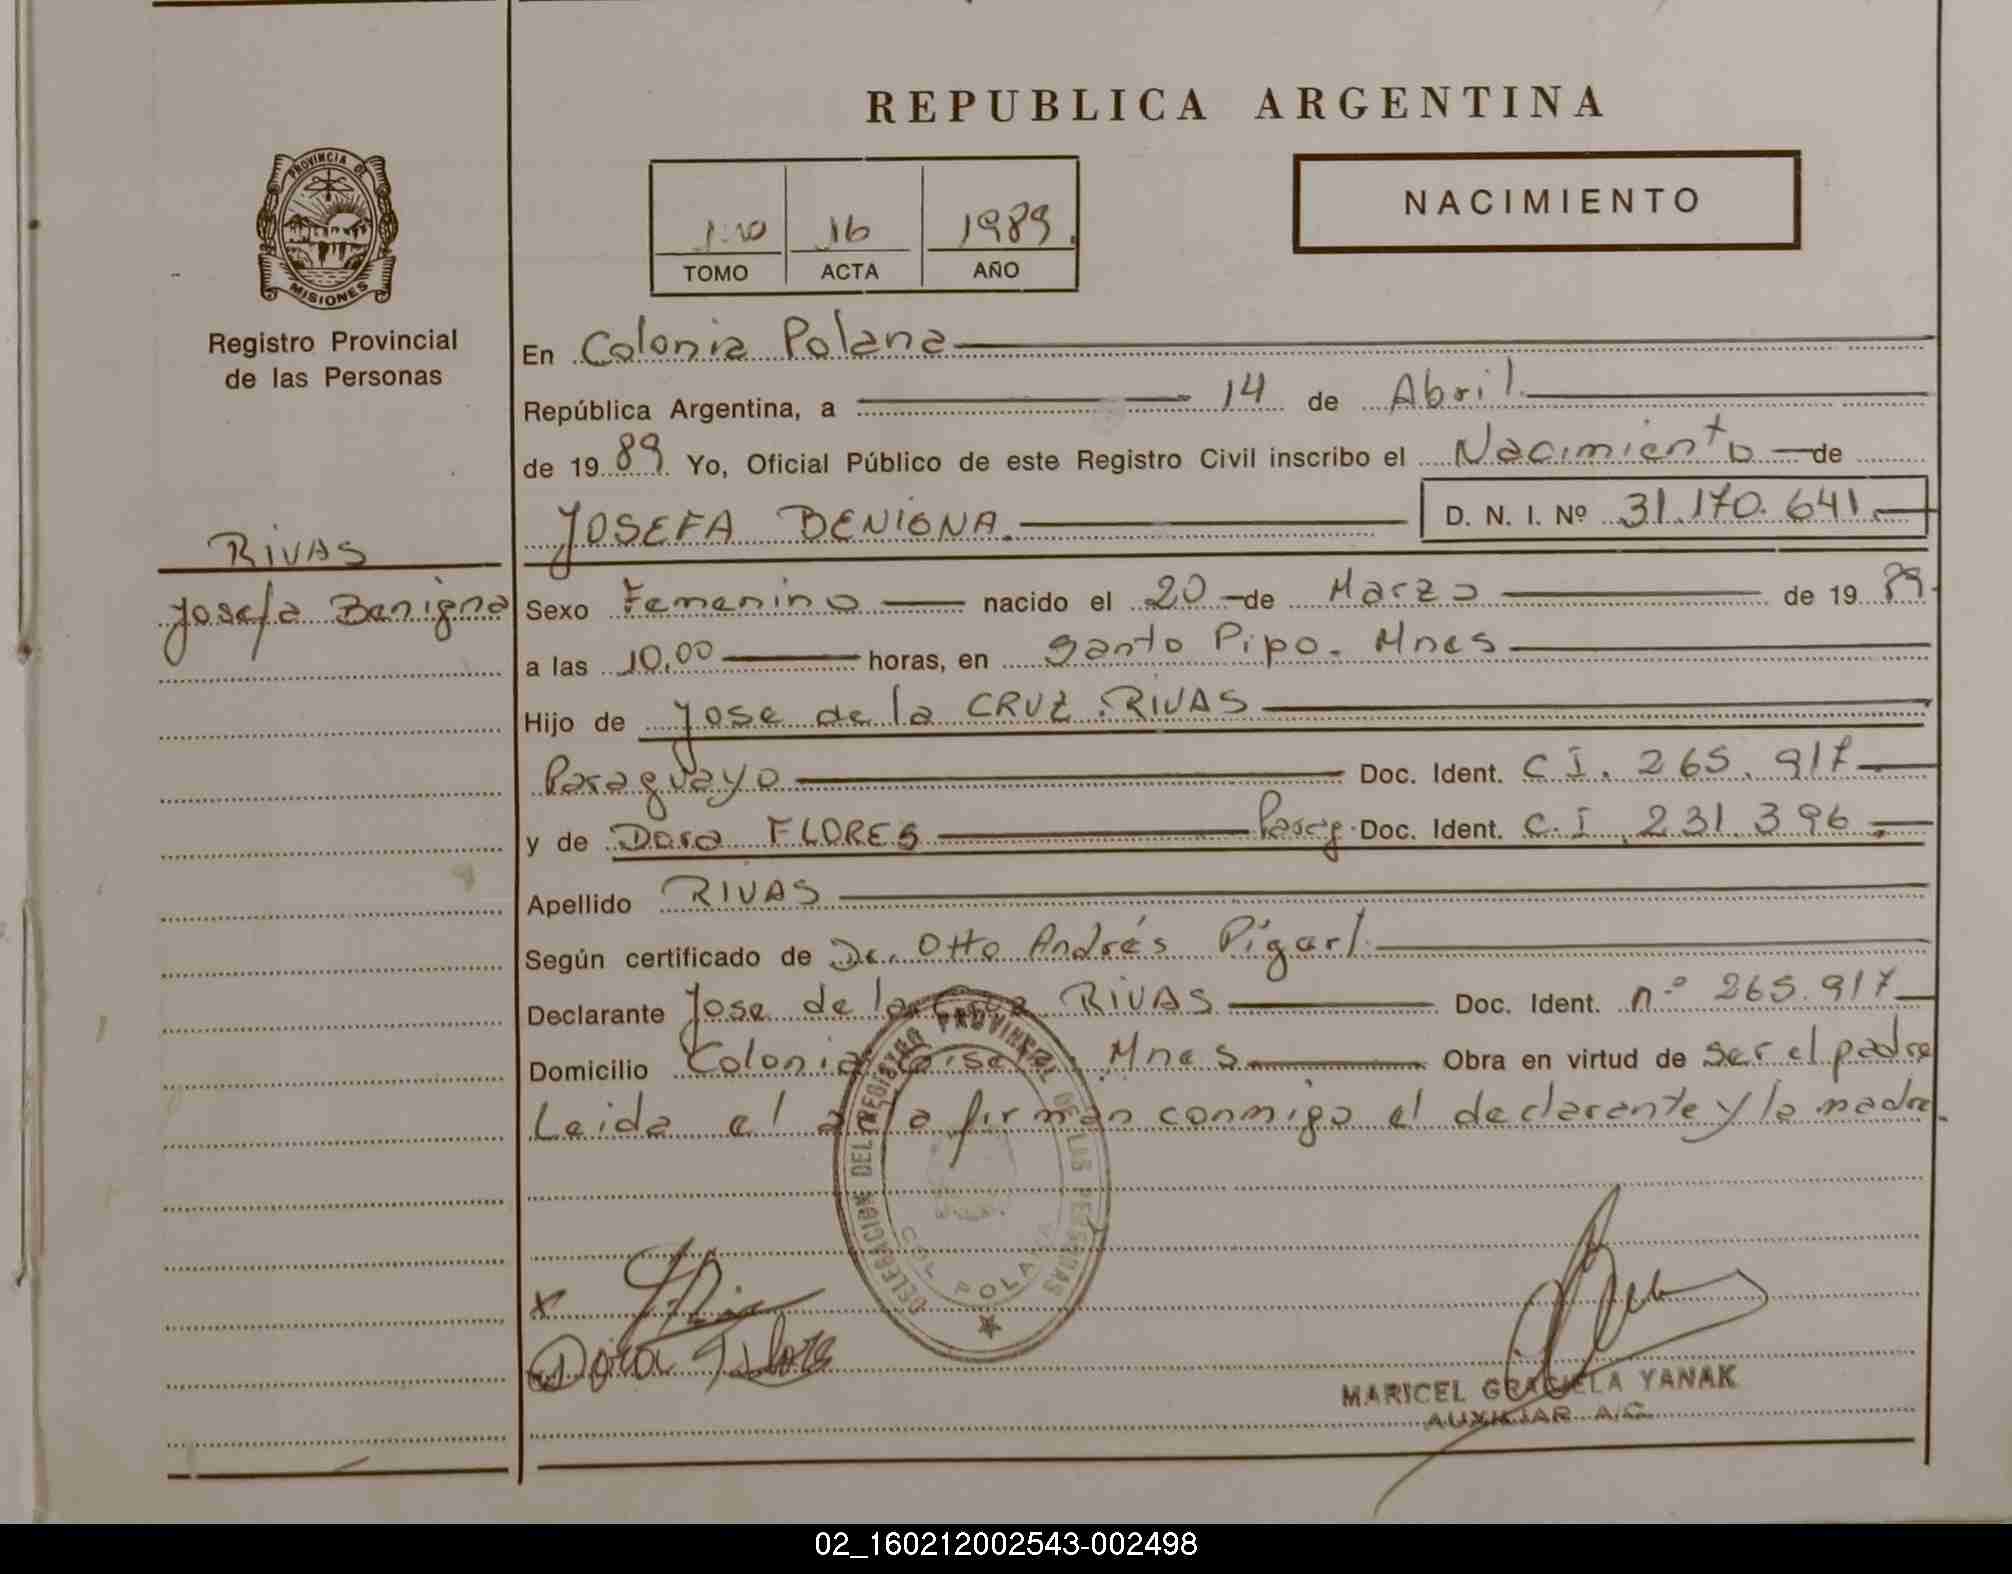 REPUBLICA ARGENTINA
NACIMIENTO
PROVINCIA DE
MISIONES
Registro Provincial
de las Personas
RIVAS
Josefa Benigna
16 1989.
TOMO ACTA AÑO
En Colonia Polana
República Argentina, a 14 de Abril
de 1989 Yo, Oficial Público de este Registro Civil inscribo el Nacimiento de
JOSEFA BENIGNA. D. N. I. Nº 31.170.641
Sexo Femenino nacido el 20 de Marzo de 1989
a las 10,00 horas, en Santo Pipo. Mnes
Hijo de Jose de la CRUZ RIVAS
Paraguayo Doc. Ident. C I. 265.917
y de Dora FLORES Parag. Doc. Ident. C.I. 231.396.
Apellido RIVAS
Según certificado de Dr. Otto Andrés
Declarante Jose de la Cruz RIVAS Doc. Ident. nº 265.917
Domicilio Colonia Mnes Obra en virtud de ser el padre
Leida el acta firman conmigo el declarante y la madre.
DELEGACION DEL REGISTRO PROVINCIAL DE LAS PERSONAS
COL POLANA
x
Dora Flores
MARICEL GRACIELA YANAK
AUXILIAR A/C
02_160212002543-002498